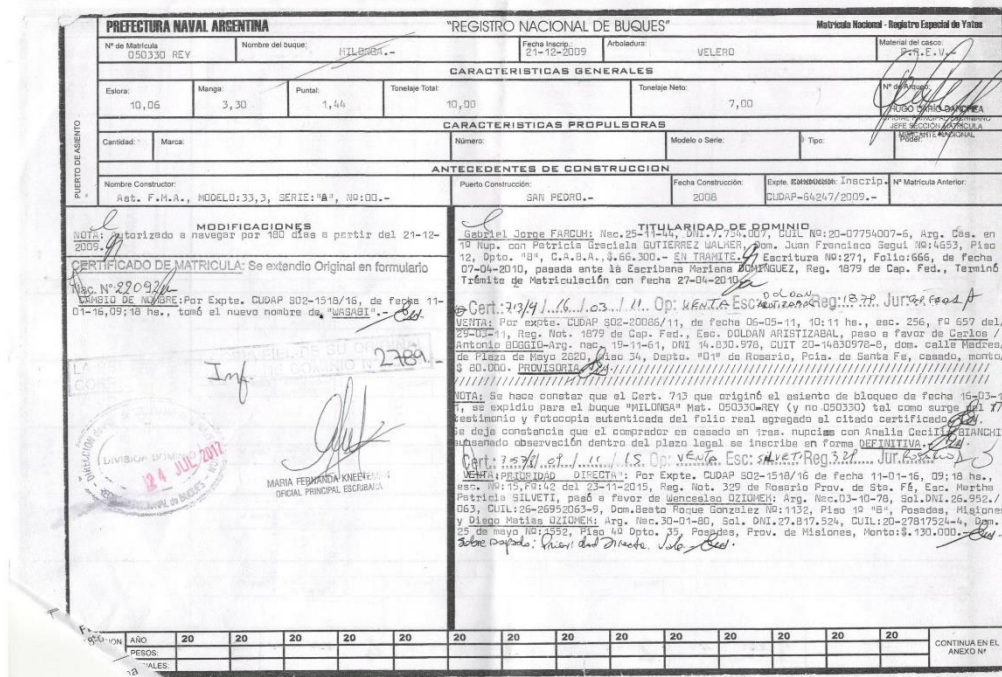 PREFECTURA NAVAL ARGENTINA "REGISTRO NACIONAL DE BUQUES" Matrícula Nacional - Registro Especial de Yates
Nº de Matrícula 050330 REY Nombre del buque: MILONGA.- Fecha Inscrip.: 21-12-2009 Arboladura: VELERO Material del casco: P.R.F.V.-
CARACTERISTICAS GENERALES
PUERTO DE ASIENTO
Eslora: 10,06 Manga: 3,30 Puntal: 1,44 Tonelaje Total: 10,00 Tonelaje Neto: 7,00 Nº de
HUGO DARIO
JEFE SECCIÓN MATRICULA
MERCANTE NACIONAL
CARACTERISTICAS PROPULSORAS
Cantidad: Marca: Número: Modelo o Serie: Tipo: Poder:
ANTECEDENTES DE CONSTRUCCION
Nombre Constructor: Ast. F.M.A., MODELO:33,3, SERIE:"A", Nº:00.- Puerto Construcción: SAN PEDRO.- Fecha Construcción: 2008 Expte. Inscrip. CUDAP-64247/2009.- Nº Matrícula Anterior:
MODIFICACIONES
NOTA: Autorizado a navegar por 180 días a partir del 21-12-
2009.-
CERTIFICADO DE MATRICULA: Se extendio Original en formulario
Nac. Nº 22092
CAMBIO DE NOMBRE:Por Expte. CUDAP S02-1518/16, de fecha 11-
01-16,09;18 hs., tomó el nuevo nombre de "WASABI".-
Inf. 2789
DIVISION DOMINIO
24 JUL 2017
NACIONAL de BUQUES
MARIA FERNANDA
OFICIAL PRINCIPAL ESCRIBANA
TITULARIDAD DE DOMINIO
Gabriel Jorge FARCUH: Nac.25-11-44, DNI.7.754.007, CUIL Nº:20-07754007-6, Arg. Cas. en
1º Nup. con Patricia Graciela GUTIERREZ WALKER, Dom. Juan Francisco Segui Nº:4653, Piso
12, Dpto. "8", C.A.B.A.,$.66.300.- EN TRAMITE. Escritura Nº:271, Folio:666, de fecha
07-04-2010, pasada ante la Escribana Mariana DOMINGUEZ, Reg. 1879 de Cap. Fed., Terminó
Trámite de Matriculación con fecha 27-04-2010
Cert.: 713/9/16/03/11 Op: VENTA Esc: DOLDAN ARISTIZABAL Reg: 1879 Jur:
VENTA: Por expte. CUDAP S02-20086/11, de fecha 06-05-11, 10:11 hs., esc. 256, fº 657 del
29-03-11, Reg. Not. 1879 de Cap. Fed., Esc. DOLDAN ARISTIZABAL, paso a favor de Carlos /
Antonio BOGGIO-Arg. nac. 19-11-61, DNI 14.830.978, CUIT 20-14830978-8, dom. calle Madres/
de Plaza de Mayo 2820, Piso 34, Depto. "01" de Rosario, Pcia. de Santa Fe, casado, monto
$ 80.000. PROVISORIA
NOTA: Se hace constar que el Cert. 713 que originó el asiento de bloqueo de fecha 16-03-1
1, se expidio para el buque "MILONGA" Mat. 050330-REY (y no 050330) tal como surge del
testimonio y fotocopia autenticada del folio real agregado al citado certificado.
Se deja constancia que el comprador es casado en 1ras. nupcias con Analia Cecilia BIANCHI
observación dentro del plazo legal se inscribe en forma DEFINITIVA.
Cert.: 7578/09/11/15 Op: VENTA Esc: SILVETI Reg: 329 Jur: Rosario
VENTA:"PRIORIDAD DIRECTA": Por Expte. CUDAP S02-1518/16 de fecha 11-01-16, 09;18 hs.,
esc. Nº:15,Fº:42 del 23-11-2015, Reg. Not. 329 de Rosario Prov. de Sta. Fé, Esc. Martha
Patricia SILVETI, pasó a favor de Wenceslao OZIOMEK: Arg. Nac.03-10-78, Sol.DNI.26.952./
063, CUIL:26-26952063-9, Dom.Beato Roque Gonzalez Nº:1132, Piso 1º "B", Posadas, Misiones
y Diego Matias OZIOMEK: Arg. Nac.30-01-80, Sol. DNI.27.817.524, CUIL:20-27817524-4, Dom.
25 de mayo Nº:1552, Piso 4º Dpto. 35, Posadas, Prov. de Misiones, Monto:$.130.000.-
Sobre Raspado: Prioridad Directa. Vale
AÑO 20 20 20 20 20 20 20 20 20 20 20 CONTINUA EN EL
PESOS: ANEXO Nº